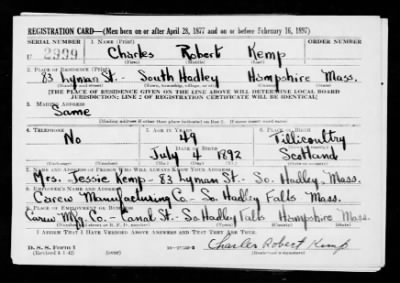 REGISTRATION CARD—(Men born on or after April 28, 1877 and on or before February 16, 1897)
SERIAL NUMBER 1. NAME (Print) ORDER NUMBER
U 2999 Charles Robert Kemp
(First) (Middle) (Last)
2. PLACE OF RESIDENCE (Print)
83 Lyman St. - South Hadley Hampshire Mass.
(Number and street) (Town, township, village, or city) (County) (State)
[THE PLACE OF RESIDENCE GIVEN ON THE LINE ABOVE WILL DETERMINE LOCAL BOARD
JURISDICTION; LINE 2 OF REGISTRATION CERTIFICATE WILL BE IDENTICAL]
3. MAILING ADDRESS
Same
[Mailing address if other than place indicated on line 2. If same insert word same]
4. TELEPHONE 5. AGE IN YEARS 6. PLACE OF BIRTH
No 49 Tillicoultry
DATE OF BIRTH (Town or county)
July 4 1892 Scotland
(Exchange) (Number) (Mo.) (Day) (Yr.) (State or country)
7. NAME AND ADDRESS OF PERSON WHO WILL ALWAYS KNOW YOUR ADDRESS
Mrs. Jessie Kemp - 83 Lyman St. - So. Hadley, Mass.
8. EMPLOYER'S NAME AND ADDRESS
Carew Manufacturing Co - So. Hadley Falls Mass.
9. PLACE OF EMPLOYMENT OR BUSINESS
Carew Mfg. Co. - Canal St. - So. Hadley Falls Hampshire Mass.
(Number and street or R. F. D. number) (Town) (County) (State)
I AFFIRM THAT I HAVE VERIFIED ABOVE ANSWERS AND THAT THEY ARE TRUE.
D. S. S. Form 1
(Revised 4-1-42) (over) Charles Robert Kemp